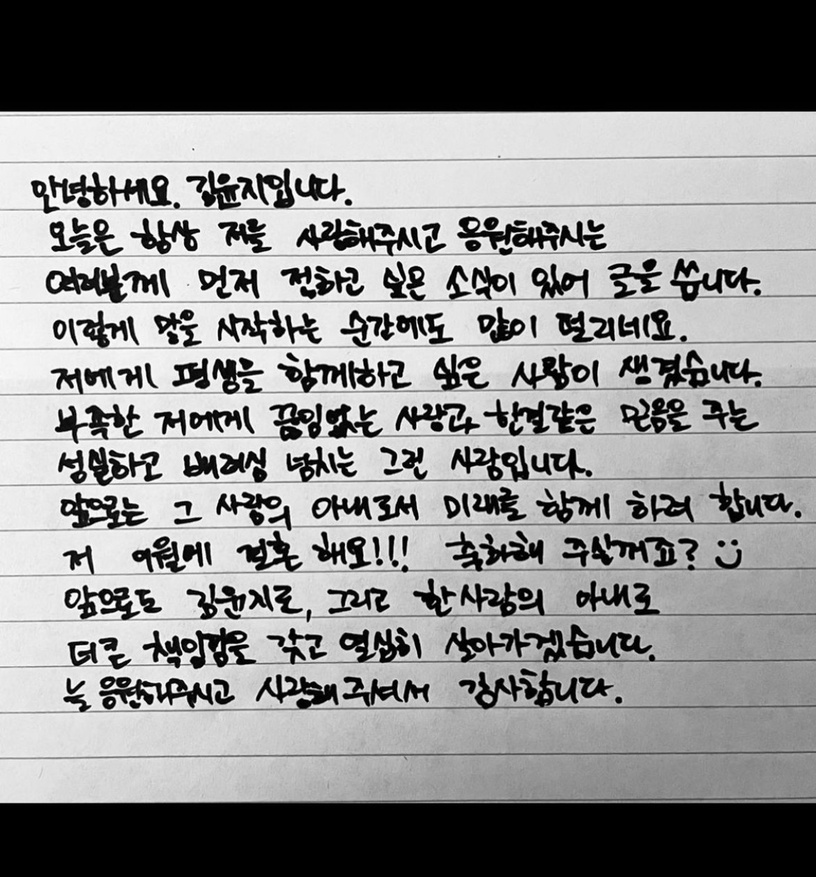 안녕하세요. 김윤지입니다.
오늘은 항상 저를 사랑해주시고 응원해주시는
여러분께 먼저 전하고 싶은 소식이 있어 글을 씁니다.
이렇게 말을 시작하는 순간에도 많이 떨리네요.
저에게 평생을 함께하고 싶은 사람이 생겼습니다.
부족한 저에게 끊임없는 사랑과 한결같은 믿음을 주는
성실하고 배려심 넘치는 그런 사람입니다.
앞으로는 그 사람의 아내로서 미래를 함께 하려 합니다.
저 9월에 결혼 해요!!! 축하해 주실꺼죠? :)
앞으로도 김윤지로, 그리고 한 사람의 아내로
더 큰 책임감을 갖고 열심히 살아가겠습니다.
늘 응원해주시고 사랑해주셔서 감사합니다.